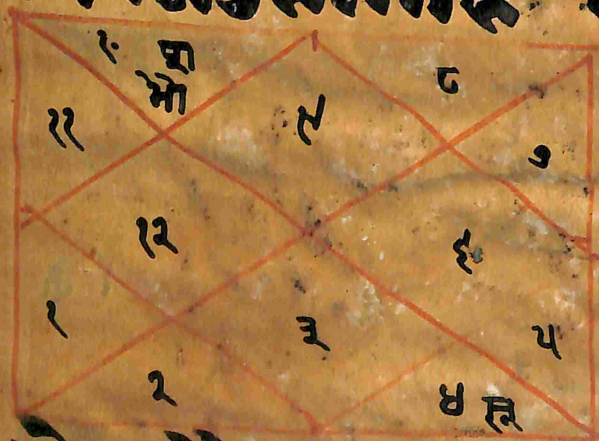 १०
८
११
९
७
१२
६
१
३
५
२
४